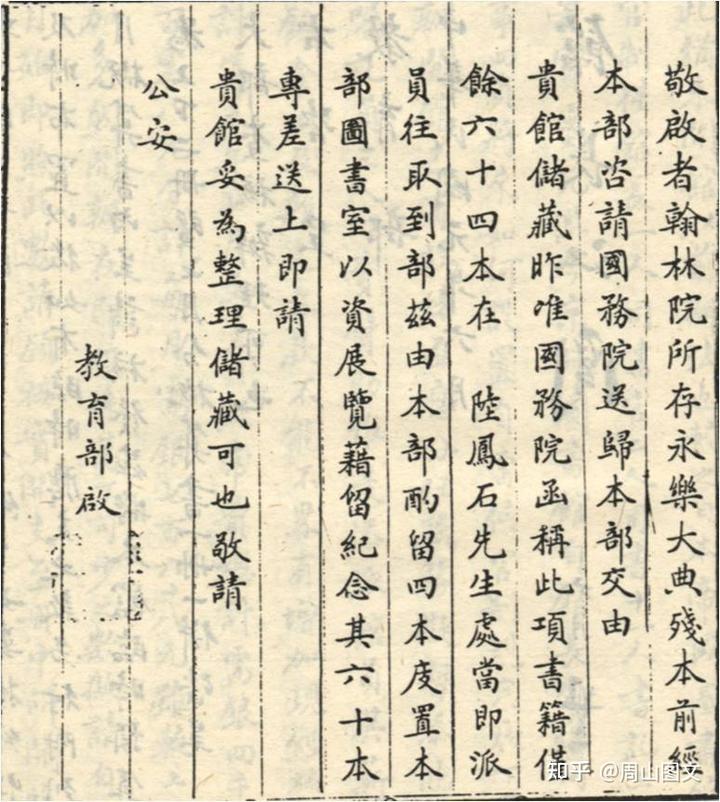 敬啟者翰林院所存永樂大典殘本前經
本部咨請國務院送歸本部交由
貴館儲藏昨准國務院函稱此項書籍僅
餘六十四本在 陸鳳石先生處當即派
員往取到部茲由本部酌留四本庋置本
部圖書室以資展覽藉留紀念其六十本
專差送上即請
貴館妥為整理儲藏可也敬請
公安
教育部啟
知乎 @周山图文